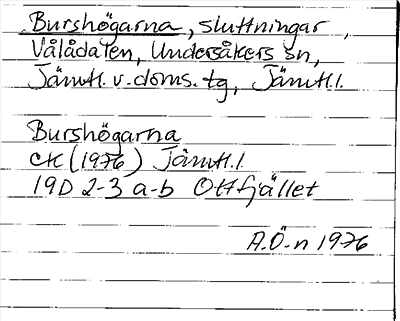 Burshögarna, sluttningar,
Vålådalen, Undersåkers sn,
Jämtl. v. doms. tg, Jämtl. l.
Burshögarna
CK (1976) Jämtl. l.
19D 2-3 a-b Ottfjället
A.Ö-n 1976